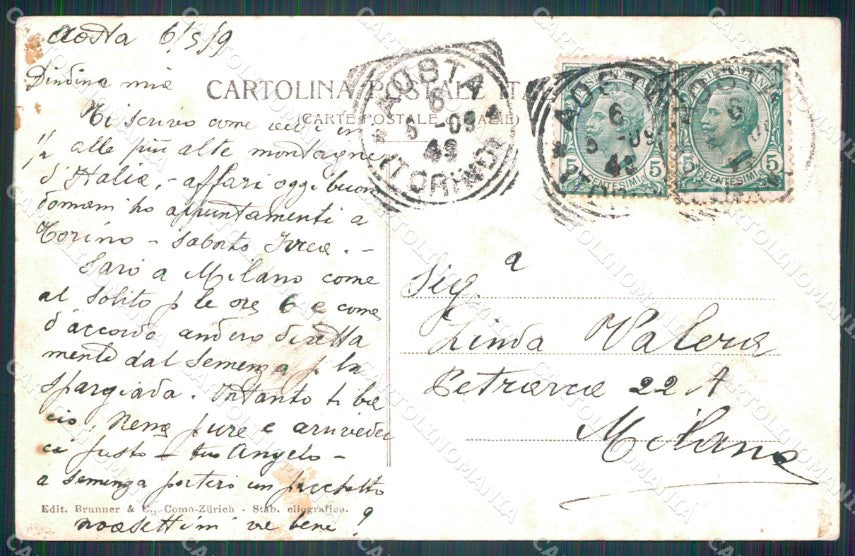 Aosta 6/5/9
Dindina mia
CARTOLINA POSTALE IT
(CARTE POSTALE D'ITALIE)
Ti scrivo come vedi in
1/2 alle più alte montagne
d'Italia, - affari oggi buoni
domani ho appuntamenti a
Torino - sabato Ivrea. -
Sarò a Milano come
al solito p le ore 6 e come
d'accordo andero diretta
mente dal Semenza p la
spargiada. Intanto ti ba
cio, Nena pure e arriveder
ci presto - tuo Angelo -
a Semenza porterò un pacchetto
Edit. Brunner & C., Como-Zürich - Stab. eliografico.
va bene ?
AOSTA
6
5 -09
(TORINO)
AOSTA
6
5 -09
5 CENTESIMI 5
5 CENTESIMI 5
a
Sig
Linda Valera
Petrarca 22 A
Milano
CARTOLINOMANIA